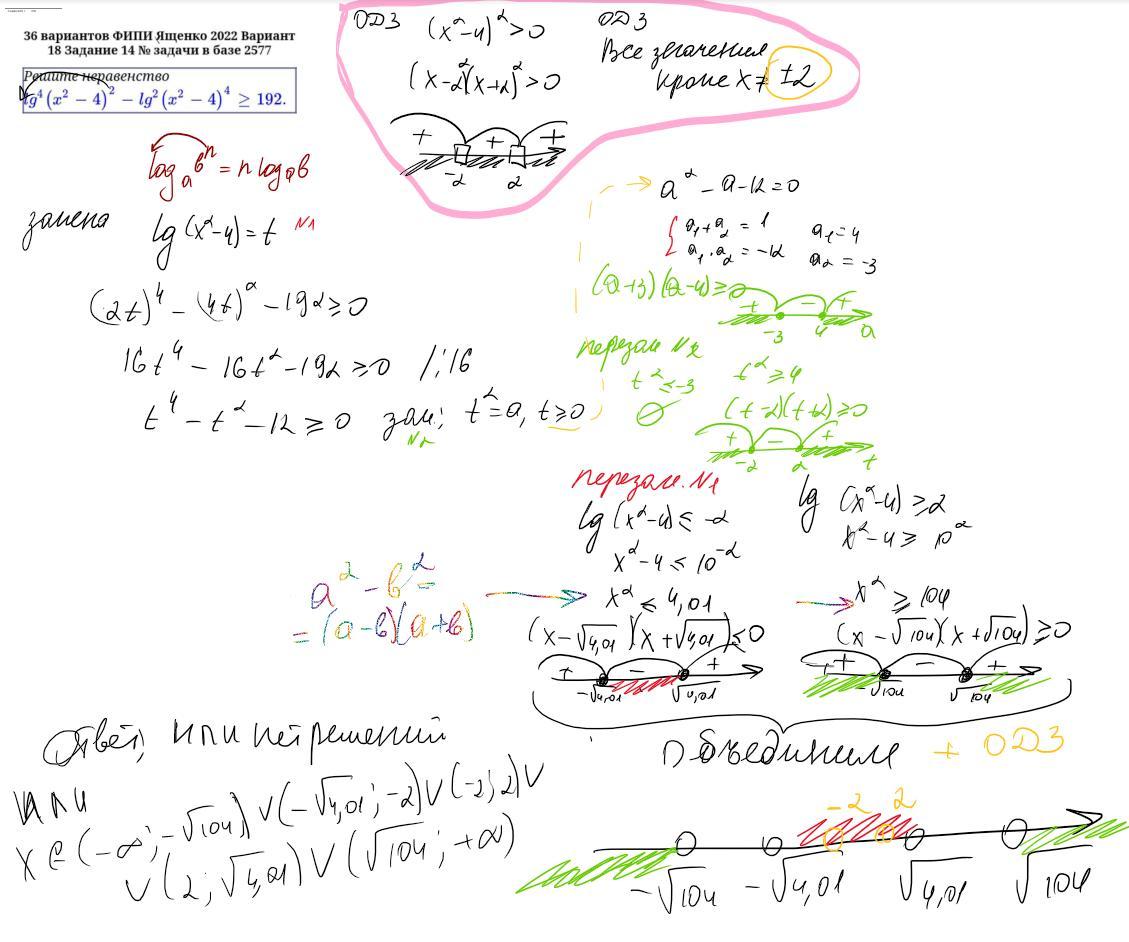 36 вариантов ФИПИ Ященко 2022 Вариант
18 Задание 14 № задачи в базе 2577
Решите неравенство
lg⁴(x² − 4)² − lg²(x² − 4)⁴ ≥ 192.
ОДЗ
(x²-4)²>0
(x-2)²(x+2)²>0
+ + +
-2 2
ОДЗ
Все значения
кроме x≠ ±2
logₐbⁿ = n logₐb
замена lg(x²-4)=t N1
(2t)⁴ - (4t)² - 192≥0
16t⁴ - 16t² - 192 ≥0 /:16
t⁴ - t² - 12 ≥ 0 зам: t²=a, t≥0
N2
a² - a - 12=0
a₁+a₂ = 1 a₁=4
a₁·a₂ = -12 a₂ = -3
(a+3)(a-4)≥0
+ - +
-3 4 a
перезам N2
t²≤-3 t²≥4
∅ (t-2)(t+2)≥0
+ - +
-2 2 t
перезам. N1
lg(x²-4)≤ -2
x²-4 ≤ 10⁻²
x² ≤ 4,01
(x-√4,01)(x+√4,01)≤0
+ - +
-√4,01 √4,01
lg (x²-4) ≥2
x²-4≥ 10²
x² ≥ 104
(x -√104)(x+√104)≥0
+ - +
-√104 √104
a² - b² =
= (a-b)(a+b)
Объединим + ОДЗ
-2 2
-√104 -√4,01 √4,01 √104
Ответ, или нет решений
или
x ∈ (-∞; -√104) ∨ (-√4,01; -2) ∨ (-2; 2) ∨
∨ (2; √4,01) ∨ (√104; +∞)